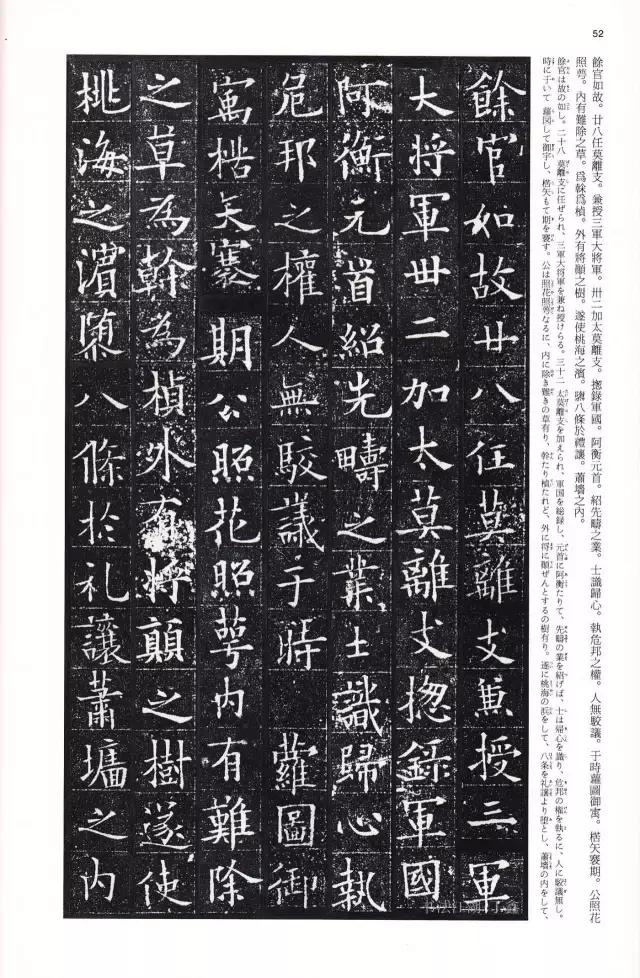 52
餘官如故。廿八任莫離支。兼授三軍大將軍。卅二加太莫離支。揔錄軍國。阿衡元首。紹先疇之業。士識歸心。執危邦之權。人無駮議。于時蘿圖御寓。楛矢褰期。公照花
照萼。內有難除之草。爲榦爲楨。外有將顚之樹。遂使桃海之濱。隳八條於禮讓。蕭墻之內。
餘官は故の如し。二十八 莫離支に任ぜられ、三軍大将軍を兼ね授けらる。三十二 太莫離支を加えられ、軍国を総録し、元首に阿衡たりて、先疇の業を紹げば、士は帰心を識り、危邦の権を執るに、人に駮議無し。
時に于いて 蘿図して御宇し、楛矢もて期を褰す。公は照花照萼なるに、内に除き難きの草有り、幹たり楨たれど、外に将に顚ぜんとするの樹有り。遂に桃海の浜をして、八条を礼譲より堕とし、蕭墻の内をして、
餘官如故廿八任莫離支兼授三軍
大將軍卅二加太莫離支揔錄軍國
阿衡元首紹先疇之業士識歸心執
危邦之權人無駮議于時蘿圖御
寓楛矢褰期公照花照萼內有難除
之草為榦為楨外有將顛之樹遂使
桃海之濱隳八條於礼讓蕭墻之內